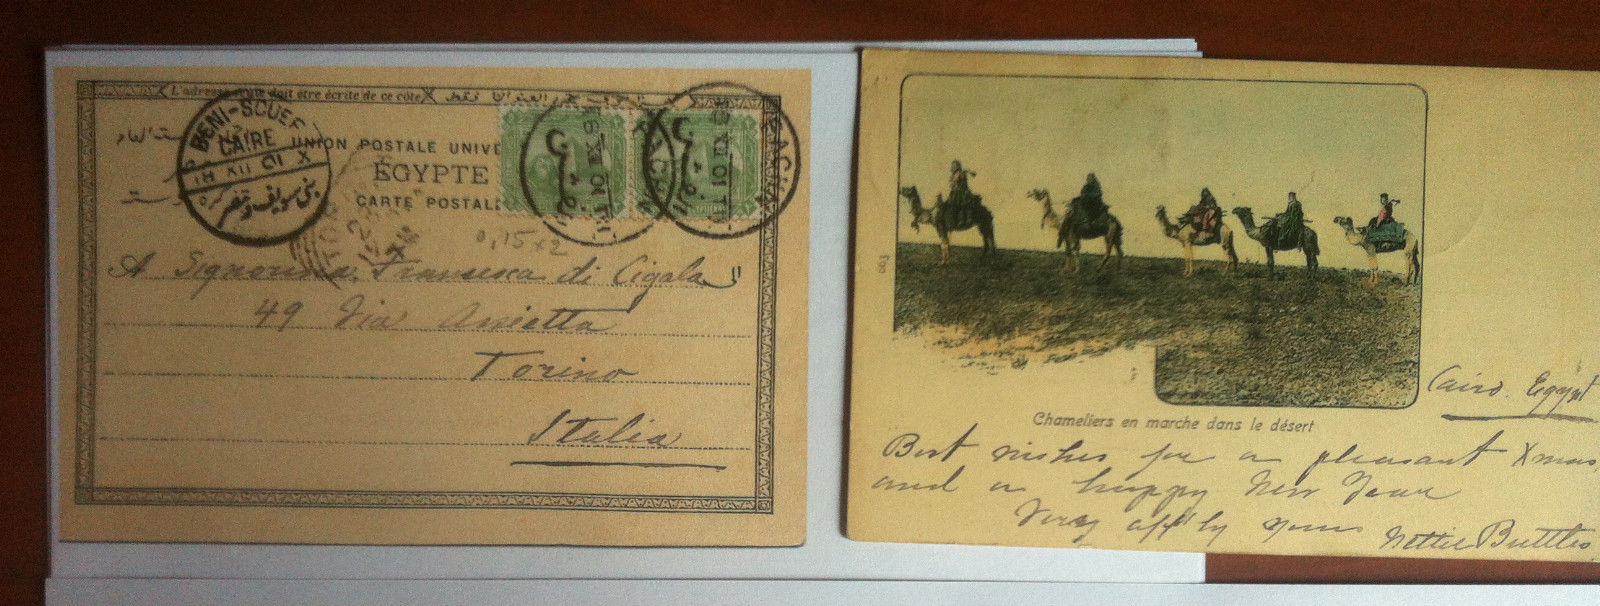 L'adresse seule doit être écrite de ce côté
BENI-SOUEF
CAIRE
18 XII 01 X
بنى سويف ومصر
UNION POSTALE UNIVE
ÉGYPTE
CARTE POSTALE
18 XII 01
18 XII 01
0,15 x 2
A Signorina Francesca di Cigala
49 Via
Torino
Italia
Chameliers en marche dans le désert
Cairo. Egypt
Best wishes for a pleasant Xmas
and a happy New Year
Very aff'ly yours
Nettie Buttles